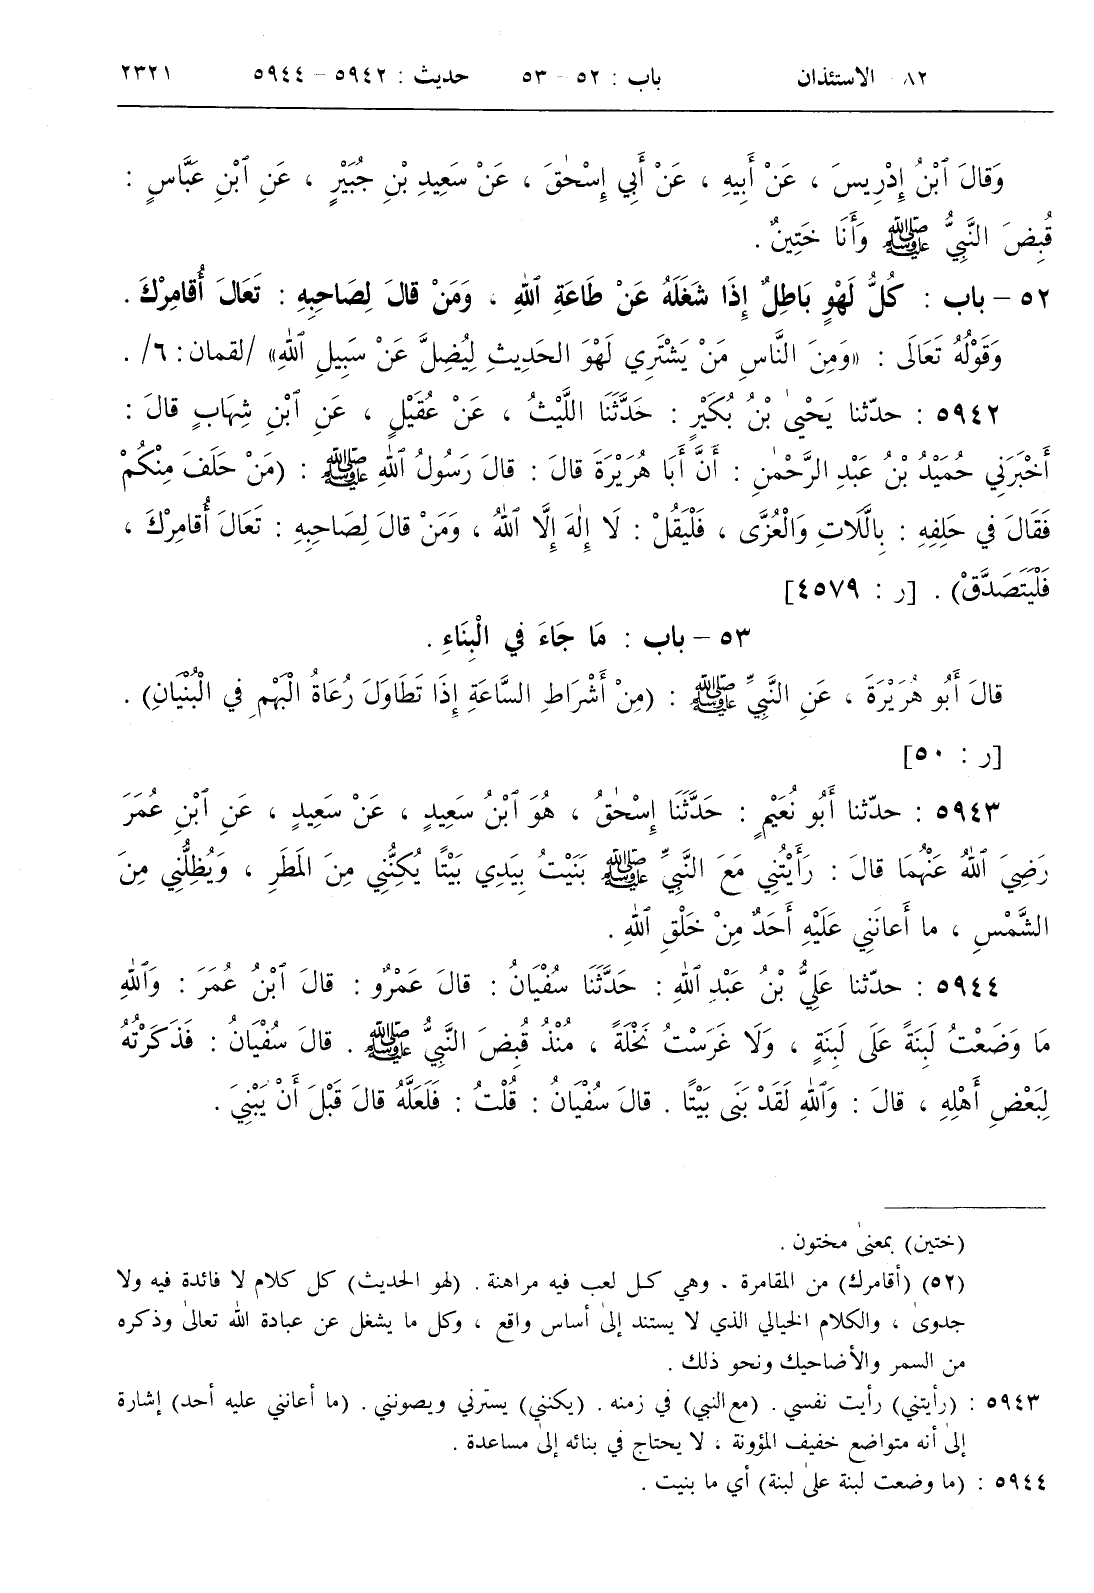 ٨٢ - الاستئذان باب : ٥٢ - ٥٣ حديث : ٥٩٤٢ - ٥٩٤٤ ٢٣٢١
وَقَالَ ٱبْنُ إِدْرِيسَ ، عَنْ أَبِيهِ ، عَنْ أَبِي إِسْحٰقَ ، عَنْ سَعِيدِ بْنِ جُبَيْرٍ ، عَنِ ٱبْنِ عَبَّاسٍ :
قُبِضَ النَّبِيُّ ﷺ وَأَنَا خَتِينٌ .
٥٢ - باب : كُلُّ لَهْوٍ بَاطِلٌ إِذَا شَغَلَهُ عَنْ طَاعَةِ ٱللهِ ، وَمَنْ قالَ لِصَاحِبِهِ : تَعَالَ أُقامِرْكَ .
وَقَوْلُهُ تَعَالَى : «وَمِنَ النَّاسِ مَنْ يَشْتَرِي لَهْوَ الحَدِيثِ لِيُضِلَّ عَنْ سَبِيلِ ٱللهِ» /لقمان: ٦/ .
٥٩٤٢ : حدّثنا يَحْيىٰ بْنُ بُكَيْرٍ : حَدَّثَنَا اللَّيْثُ ، عَنْ عُقَيْلٍ ، عَنِ ٱبْنِ شِهَابٍ قالَ :
أَخْبَرَنِي حُمَيْدُ بْنُ عَبْدِ الرَّحْمٰنِ : أَنَّ أَبَا هُرَيْرَةَ قالَ : قالَ رَسُولُ ٱللهِ ﷺ : (مَنْ حَلَفَ مِنْكُمْ
فَقَالَ في حَلِفِهِ : بِاللَّاتِ وَالْعُزَّى ، فَلْيَقُلْ : لَا إِلٰهَ إِلَّا ٱللهُ ، وَمَنْ قالَ لِصَاحِبِهِ : تَعَالَ أُقامِرْكَ ،
فَلْيَتَصَدَّقْ) . [ر : ٤٥٧٩]
٥٣ - باب : مَا جَاءَ في الْبِنَاءِ .
قالَ أَبُو هُرَيْرَةَ ، عَنِ النَّبِيِّ ﷺ : (مِنْ أَشْرَاطِ السَّاعَةِ إِذَا تَطَاوَلَ رُعَاةُ الْبَهْمِ في الْبُنْيَانِ) .
[ر : ٥٠]
٥٩٤٣ : حدّثنا أَبُو نُعَيْمٍ : حَدَّثَنَا إِسْحٰقُ ، هُوَ ٱبْنُ سَعِيدٍ ، عَنْ سَعِيدٍ ، عَنِ ٱبْنِ عُمَرَ
رَضِيَ ٱللهُ عَنْهُمَا قالَ : رَأَيْتُنِي مَعَ النَّبِيِّ ﷺ بَنَيْتُ بِيَدِي بَيْتًا يُكِنُّنِي مِنَ المَطَرِ ، وَيُظِلُّنِي مِنَ
الشَّمْسِ ، ما أَعانَنِي عَلَيْهِ أَحَدٌ مِنْ خَلْقِ ٱللهِ .
٥٩٤٤ : حدّثنا عَلِيُّ بْنُ عَبْدِ ٱللهِ : حَدَّثَنَا سُفْيَانُ : قالَ عَمْرٌو : قالَ ٱبْنُ عُمَرَ : وَٱللهِ
مَا وَضَعْتُ لَبِنَةً عَلَى لَبِنَةٍ ، وَلَا غَرَسْتُ نَخْلَةً ، مُنْذُ قُبِضَ النَّبِيُّ ﷺ . قالَ سُفْيَانُ : فَذَكَرْتُهُ
لِبَعْضِ أَهْلِهِ ، قالَ : وَٱللهِ لَقَدْ بَنَى بَيْتًا . قالَ سُفْيَانُ : قُلْتُ : فَلَعَلَّهُ قالَ قَبْلَ أَنْ يَبْنِيَ .
(ختين) بمعنىٰ مختون .
(٥٢) (أقامرك) من المقامرة ، وهي كل لعب فيه مراهنة . (لهو الحديث) كل كلام لا فائدة فيه ولا
جدوىٰ ، والكلام الخيالي الذي لا يستند إلىٰ أساس واقع ، وكل ما يشغل عن عبادة الله تعالىٰ وذكره
من السمر والأضاحيك ونحو ذلك .
٥٩٤٣ : (رأيتني) رأيت نفسي . (مع النبي) في زمنه . (يكنني) يسترني ويصونني . (ما أعانني عليه أحد) إشارة
إلىٰ أنه متواضع خفيف المؤونة ، لا يحتاج في بنائه إلىٰ مساعدة .
٥٩٤٤ : (ما وضعت لبنة علىٰ لبنة) أي ما بنيت .